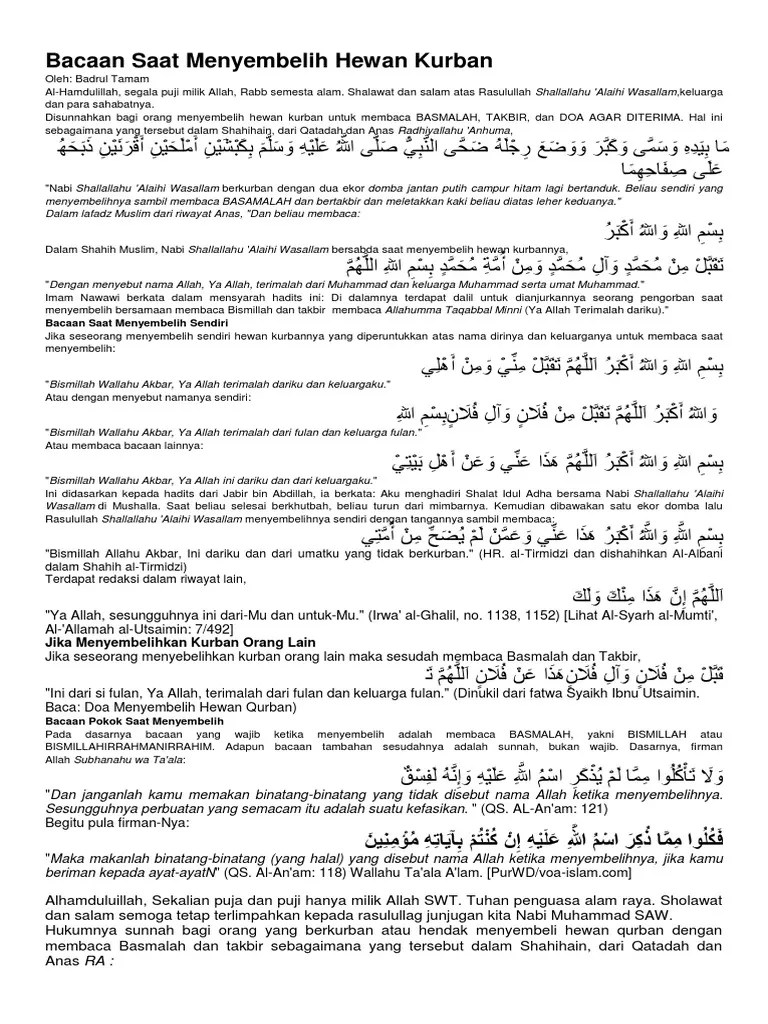 Bacaan Saat Menyembelih Hewan Kurban
Oleh: Badrul Tamam
Al-Hamdulillah, segala puji milik Allah, Rabb semesta alam. Shalawat dan salam atas Rasulullah Shallallahu 'Alaihi Wasallam,keluarga
dan para sahabatnya.
Disunnahkan bagi orang menyembelih hewan kurban untuk membaca BASMALAH, TAKBIR, dan DOA AGAR DITERIMA. Hal ini
sebagaimana yang tersebut dalam Shahihain, dari Qatadah dan Anas Radhiyallahu 'Anhuma,
مَا بِيَدِهِ وَسَمَّى وَكَبَّرَ وَوَضَعَ رِجْلَهُ ضَحَّى النَّبِيُّ صَلَّى اللهُ عَلَيْهِ وَسَلَّمَ بِكَبْشَيْنِ أَمْلَحَيْنِ أَقْرَنَيْنِ ذَبَحَهُ
عَلَى صِفَاحِهِمَا
"Nabi Shallallahu 'Alaihi Wasallam berkurban dengan dua ekor domba jantan putih campur hitam lagi bertanduk. Beliau sendiri yang
menyembelihnya sambil membaca BASAMALAH dan bertakbir dan meletakkan kaki beliau diatas leher keduanya."
Dalam lafadz Muslim dari riwayat Anas, "Dan beliau membaca:
بِسْمِ اللهِ وَاللهُ أَكْبَرُ
Dalam Shahih Muslim, Nabi Shallallahu 'Alaihi Wasallam bersabda saat menyembelih hewan kurbannya,
تَقَبَّلْ مِنْ مُحَمَّدٍ وَآلِ مُحَمَّدٍ وَمِنْ أُمَّةِ مُحَمَّدٍ بِسْمِ اللهِ اللَّهُمَّ
"Dengan menyebut nama Allah, Ya Allah, terimalah dari Muhammad dan keluarga Muhammad serta umat Muhammad."
Imam Nawawi berkata dalam mensyarah hadits ini: Di dalamnya terdapat dalil untuk dianjurkannya seorang pengorban saat
menyembelih bersamaan membaca Bismillah dan takbir membaca Allahumma Taqabbal Minni (Ya Allah Terimalah dariku)."
Bacaan Saat Menyembelih Sendiri
Jika seseorang menyembelih sendiri hewan kurbannya yang diperuntukkan atas nama dirinya dan keluarganya untuk membaca saat
menyembelih:
بِسْمِ اللهِ وَاللهُ أَكْبَرُ اَللَّهُمَّ تَقَبَّلْ مِنِّيْ وَمِنْ أَهْلِي
"Bismillah Wallahu Akbar, Ya Allah terimalah dariku dan keluargaku."
Atau dengan menyebut namanya sendiri:
وَاللهُ أَكْبَرُ اَللَّهُمَّ تَقَبَّلْ مِنْ فُلَانٍ وَآلِ فُلَانٍبِسْمِ اللهِ
"Bismillah Wallahu Akbar, Ya Allah terimalah dari fulan dan keluarga fulan."
Atau membaca bacaan lainnya:
بِسْمِ اللهِ وَاللهُ أَكْبَرُ اَللَّهُمَّ هَذَا عَنِّي وَعَنْ أَهْلِ بَيْتِيْ
"Bismillah Wallahu Akbar, Ya Allah ini dariku dan dari keluargaku."
Ini didasarkan kepada hadits dari Jabir bin Abdillah, ia berkata: Aku menghadiri Shalat Idul Adha bersama Nabi Shallallahu 'Alaihi
Wasallam di Mushalla. Saat beliau selesai berkhutbah, beliau turun dari mimbarnya. Kemudian dibawakan satu ekor domba lalu
Rasulullah Shallallahu 'Alaihi Wasallam menyembelihnya sendiri dengan tangannya sambil membaca:
بِسْمِ اللَّهِ وَاللَّهُ أَكْبَرُ هَذَا عَنِّي وَعَمَّنْ لَمْ يُضَحِّ مِنْ أُمَّتِي
"Bismillah Allahu Akbar, Ini dariku dan dari umatku yang tidak berkurban." (HR. al-Tirmidzi dan dishahihkan Al-Albani
dalam Shahih al-Tirmidzi)
Terdapat redaksi dalam riwayat lain,
اَللَّهُمَّ إِنَّ هَذَا مِنْكَ وَلَكَ
"Ya Allah, sesungguhnya ini dari-Mu dan untuk-Mu." (Irwa' al-Ghalil, no. 1138, 1152) [Lihat Al-Syarh al-Mumti',
Al-'Allamah al-Utsaimin: 7/492]
Jika Menyembelihkan Kurban Orang Lain
Jika seseorang menyebelihkan kurban orang lain maka sesudah membaca Basmalah dan Takbir,
قَبَّلْ مِنْ فُلَانٍ وَآلِ فُلَانٍهَذَا عَنْ فُلَانٍ اَللَّهُمَّ تَ
"Ini dari si fulan, Ya Allah, terimalah dari fulan dan keluarga fulan." (Dinukil dari fatwa Syaikh Ibnu Utsaimin.
Baca: Doa Menyembelih Hewan Qurban)
Bacaan Pokok Saat Menyembelih
Pada dasarnya bacaan yang wajib ketika menyembelih adalah membaca BASMALAH, yakni BISMILLAH atau
BISMILLAHIRRAHMANIRRAHIM. Adapun bacaan tambahan sesudahnya adalah sunnah, bukan wajib. Dasarnya, firman
Allah Subhanahu wa Ta'ala:
وَلَا تَأْكُلُوا مِمَّا لَمْ يُذْكَرِ اسْمُ اللَّهِ عَلَيْهِ وَإِنَّهُ لَفِسْقٌ
"Dan janganlah kamu memakan binatang-binatang yang tidak disebut nama Allah ketika menyembelihnya.
Sesungguhnya perbuatan yang semacam itu adalah suatu kefasikan. " (QS. AL-An'am: 121)
Begitu pula firman-Nya:
فَكُلُوا مِمَّا ذُكِرَ اسْمُ اللَّهِ عَلَيْهِ إِنْ كُنْتُمْ بِآَيَاتِهِ مُؤْمِنِينَ
"Maka makanlah binatang-binatang (yang halal) yang disebut nama Allah ketika menyembelihnya, jika kamu
beriman kepada ayat-ayatN" (QS. Al-An'am: 118) Wallahu Ta'ala A'lam. [PurWD/voa-islam.com]
Alhamduluillah, Sekalian puja dan puji hanya milik Allah SWT. Tuhan penguasa alam raya. Sholawat
dan salam semoga tetap terlimpahkan kepada rasulullag junjugan kita Nabi Muhammad SAW.
Hukumnya sunnah bagi orang yang berkurban atau hendak menyembeli hewan qurban dengan
membaca Basmalah dan takbir sebagaimana yang tersebut dalam Shahihain, dari Qatadah dan
Anas RA :